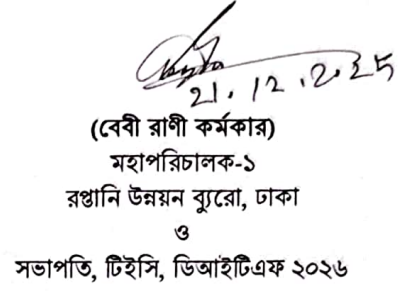 21.12.2025
(বেবী রাণী কর্মকার)
মহাপরিচালক-১
রপ্তানি উন্নয়ন ব্যুরো, ঢাকা
ও
সভাপতি, টিইসি, ডিআইটিএফ ২০২৬